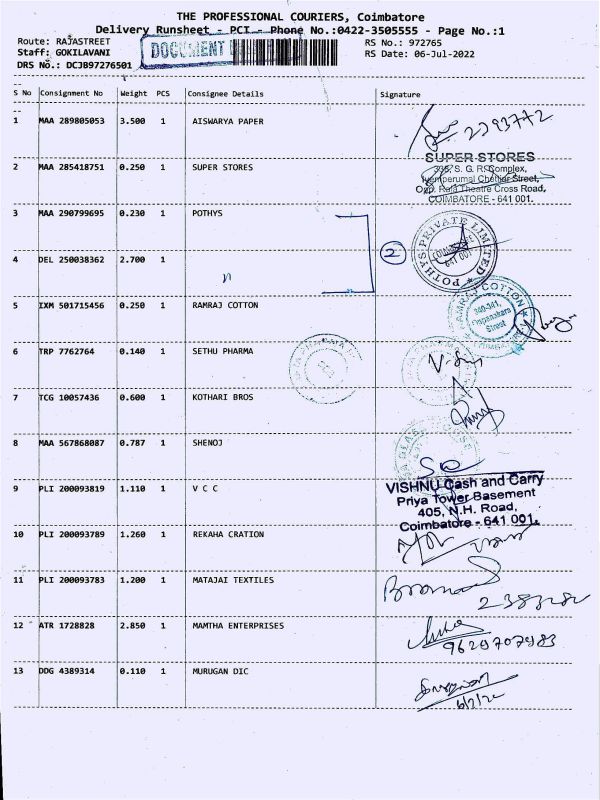 THE PROFESSIONAL COURIERS, Coimbatore
Delivery Runsheet - PCT - Phone No.:0422-3505555 - Page No.:1
Route: RAJASTREET RS No.: 972765
Staff: GOKILAVANI DOCUMENT RS Date: 06-Jul-2022
DRS No.: DCJB97276501
S No Consignment No Weight PCS Consignee Details Signature
1 MAA 289805053 3.500 1 AISWARYA PAPER 2393772
2 MAA 285418751 0.250 1 SUPER STORES
SUPER STORES
395, S. G. R Complex,
Chettiar Street,
Opp. Raja Theatre Cross Road,
COIMBATORE - 641 001.
3 MAA 290799695 0.230 1 POTHYS
2
POTHYS PRIVATE LIMITED
COIMBATORE
641 001
4 DEL 250038362 2.700 1 "
5 IXM 501715456 0.250 1 RAMRAJ COTTON
RAMRAJ COTTON
340-341,
Street
6 TRP 7762764 0.140 1 SETHU PHARMA
7 TCG 10057436 0.600 1 KOTHARI BROS
8 MAA 567868087 0.787 1 SHENOJ
9 PLI 200093819 1.110 1 V C C
VISHNU Cash and Carry
Priya Tower Basement
405, N.H. Road,
Coimbatore - 641 001.
10 PLI 200093789 1.260 1 REKAHA CRATION
11 PLI 200093783 1.200 1 MATAJAI TEXTILES
12 ATR 1728828 2.850 1 MAMTHA ENTERPRISES
9629707983
13 DDG 4389314 0.110 1 MURUGAN DIC